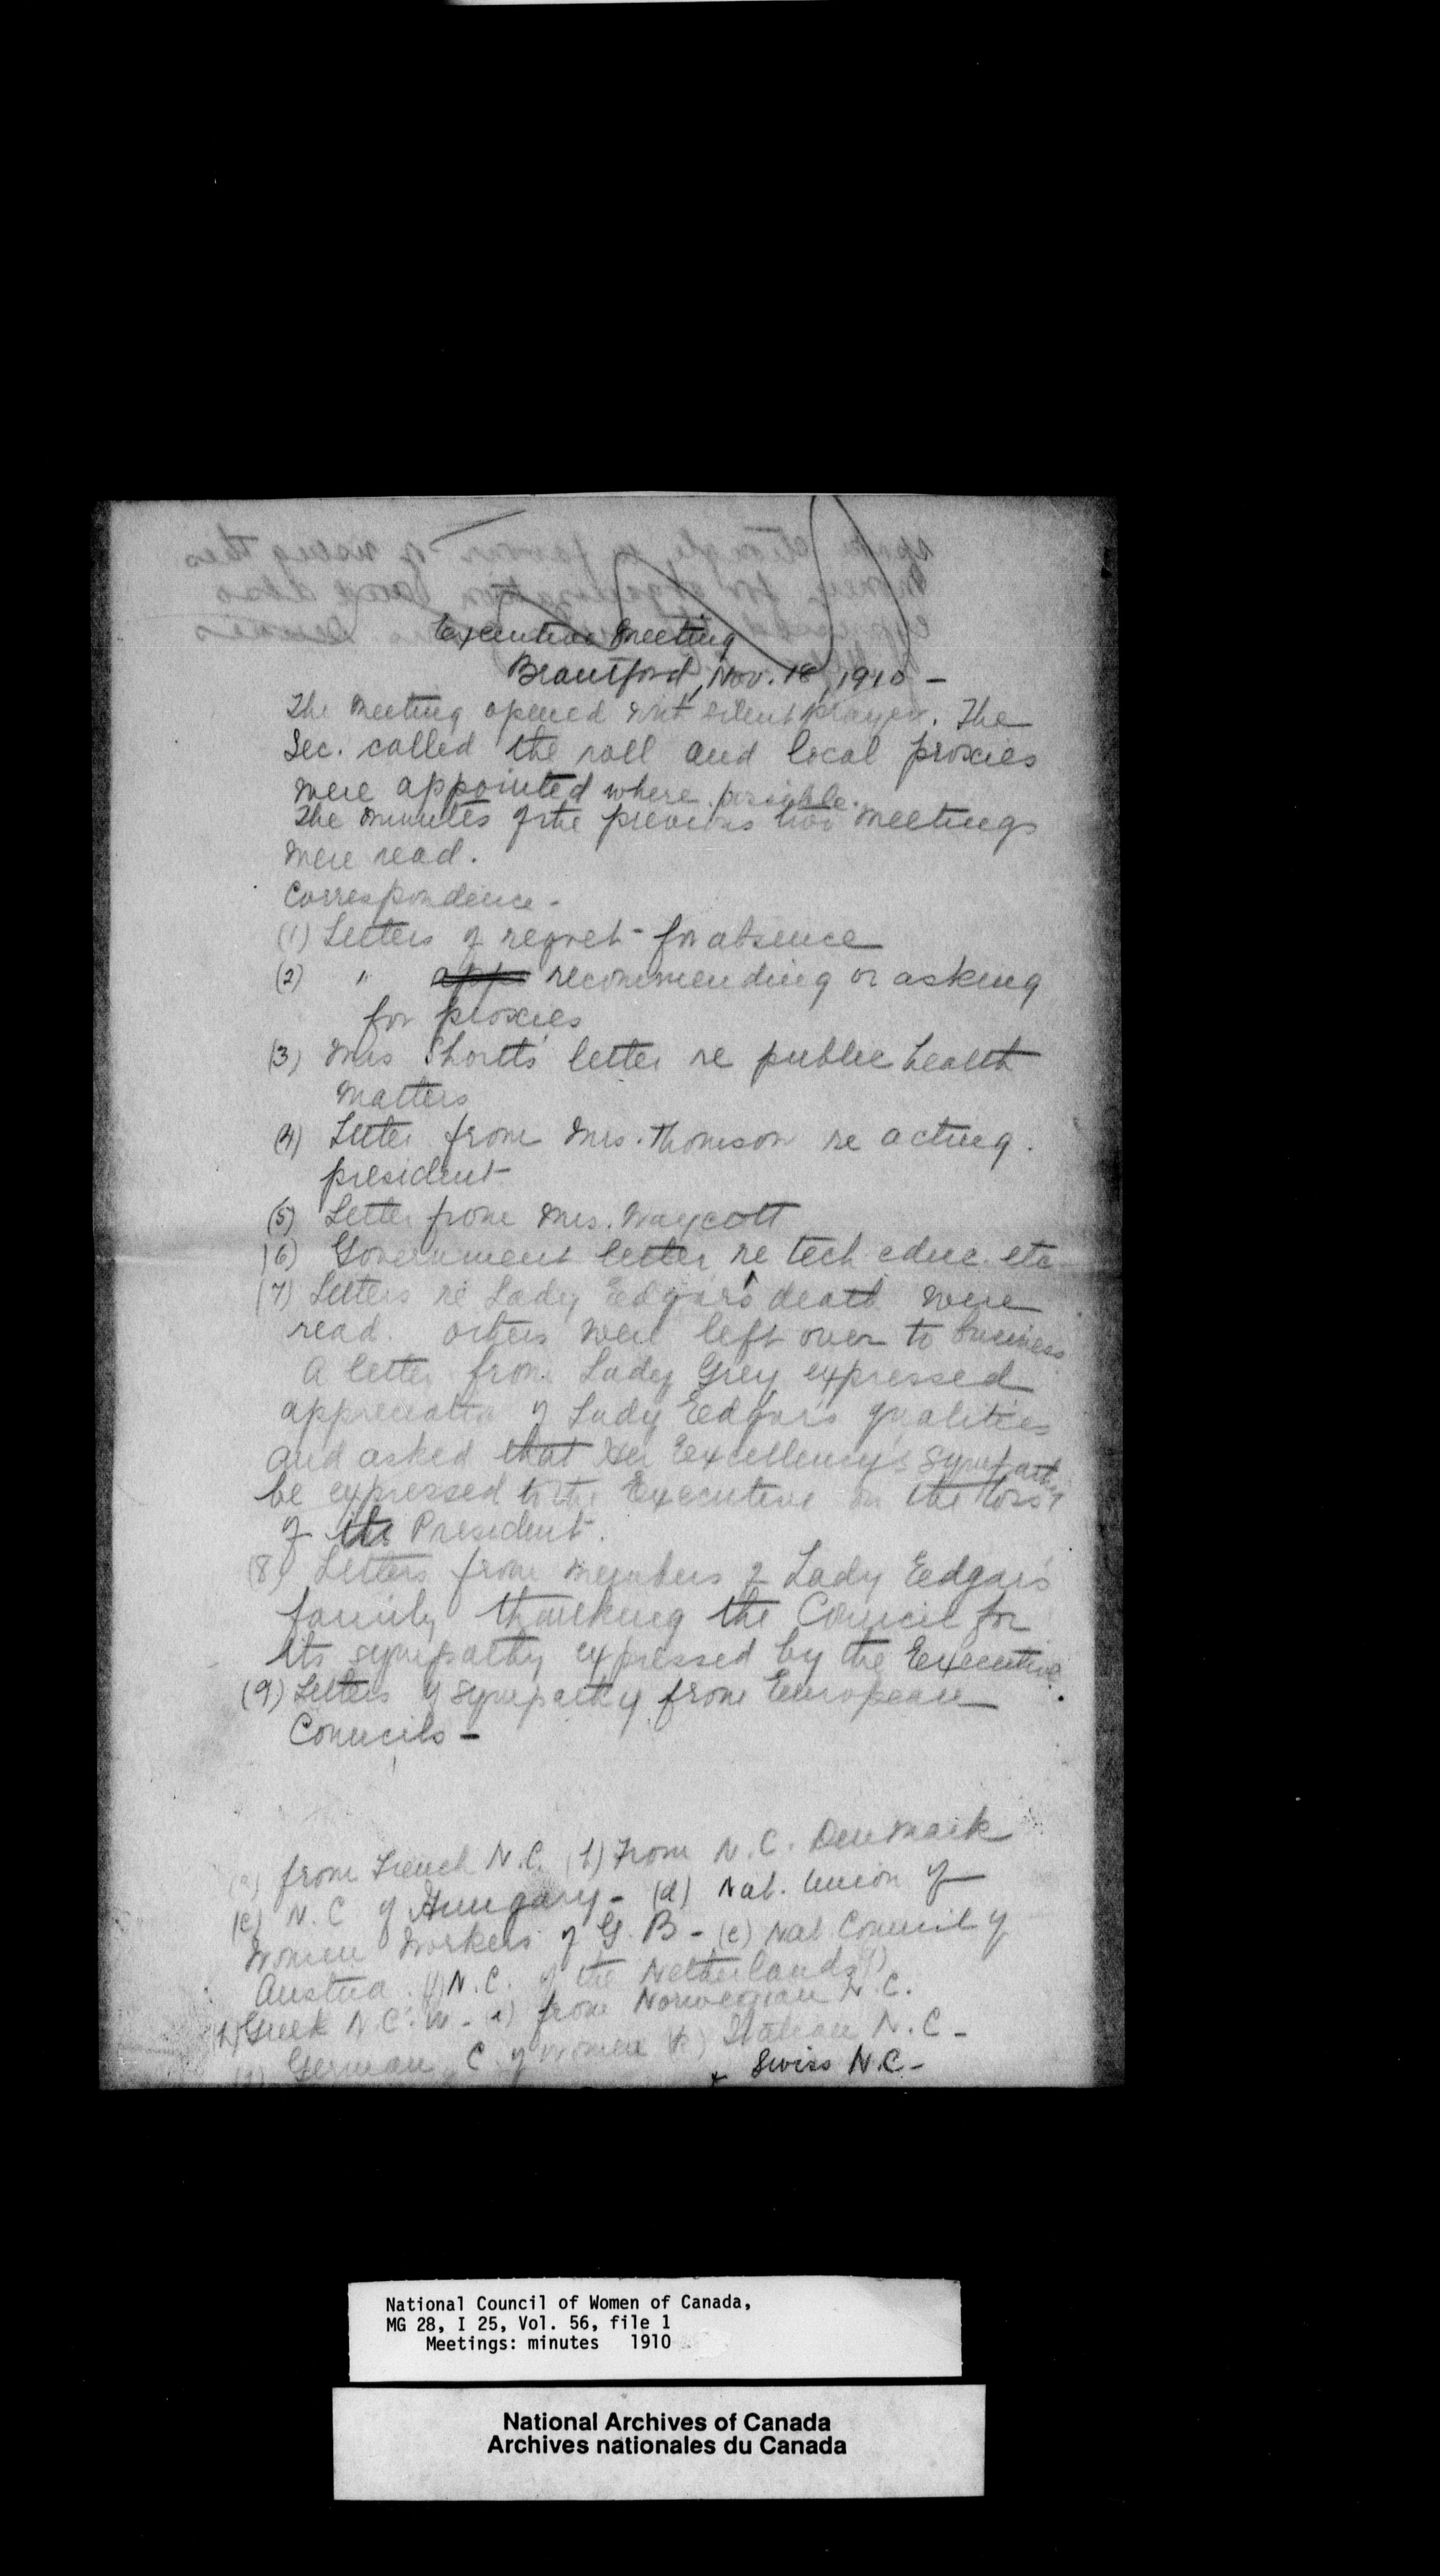 Executive Meeting
Brantford, Nov. 18, 1910 -
The meeting opened with silent prayer. The
Sec. called the roll and local proxies
were appointed where possible.
The minutes of the previous two meetings
were read.
Correspondence -
(1) Letters of regret - for absence
(2) " app recommending or asking
for proxies
(3) Mrs Shortt's letter re public health
matters
(4) Letter from Mrs. Thomson re acting
president
(5) Letter from Mrs. Waycott
(6) Government letter re tech educ. etc
(7) Letters re Lady Edgar's death were
read. others were left over to business
A letter from Lady Grey expressed
appreciation of Lady Edgar's qualities
and asked that Her Excellency's sympathy
be expressed to the Executive on the loss
of the President.
(8) Letters from members of Lady Edgar's
family thanking the Council for
its sympathy expressed by the Executive.
(9) Letters of sympathy from European
Councils -
(a) from French N.C. (b) From N.C. Denmark
(c) N.C of Hungary - (d) Nat. Union of
Women Workers of G. B - (e) Nat Council of
Austria. (f) N.C. of the Netherlands
(h) Greek N.C. W - (i) from Norwegian N.C.
German C of Women (k) Italian N.C -
Swiss N.C -
National Council of Women of Canada,
MG 28, I 25, Vol. 56, file 1
Meetings: minutes 1910
National Archives of Canada
Archives nationales du Canada